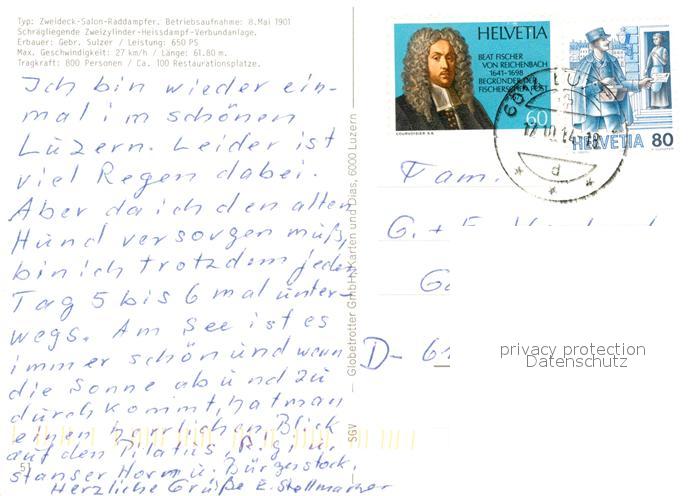 Typ: Zweideck-Salon-Raddampfer. Betriebsaufnahme: 8.Mai 1901
Schrägliegende Zweizylinder-Heissdampf-Verbundanlage.
Erbauer: Gebr. Sulzer / Leistung: 650 PS
Max. Geschwindigkeit: 27 km/h / Länge: 61.80 m.
Tragkraft: 800 Personen / Ca. 100 Restaurationsplätze.
Ich bin wieder ein-
mal im schönen
Luzern. Leider ist
viel Regen dabei.
Aber da ich den alten
Hund versorgen muß,
bin ich trotzdem jeden
Tag 5 bis 6 mal unter-
wegs. Am See ist es
immer schön und wenn
die Sonne ab und zu
durchkommt, hat man
einen herrlichen Blick
auf den Pilatus, Rigi u.
stanser Horn u. Bürgenstock.
Herzliche Grüße E.
51
SGV — Globetrotter GmbH, Karten und Dias, 6000 Luzern
HELVETIA
BEAT FISCHER
VON REICHENBACH
1641-1698
BEGRÜNDER DER
FISCHERSCHEN POST
60
COURVOISIER S.A.
HELVETIA 80
d
Fam.
G. + E.
D- 61
privacy protection
Datenschutz